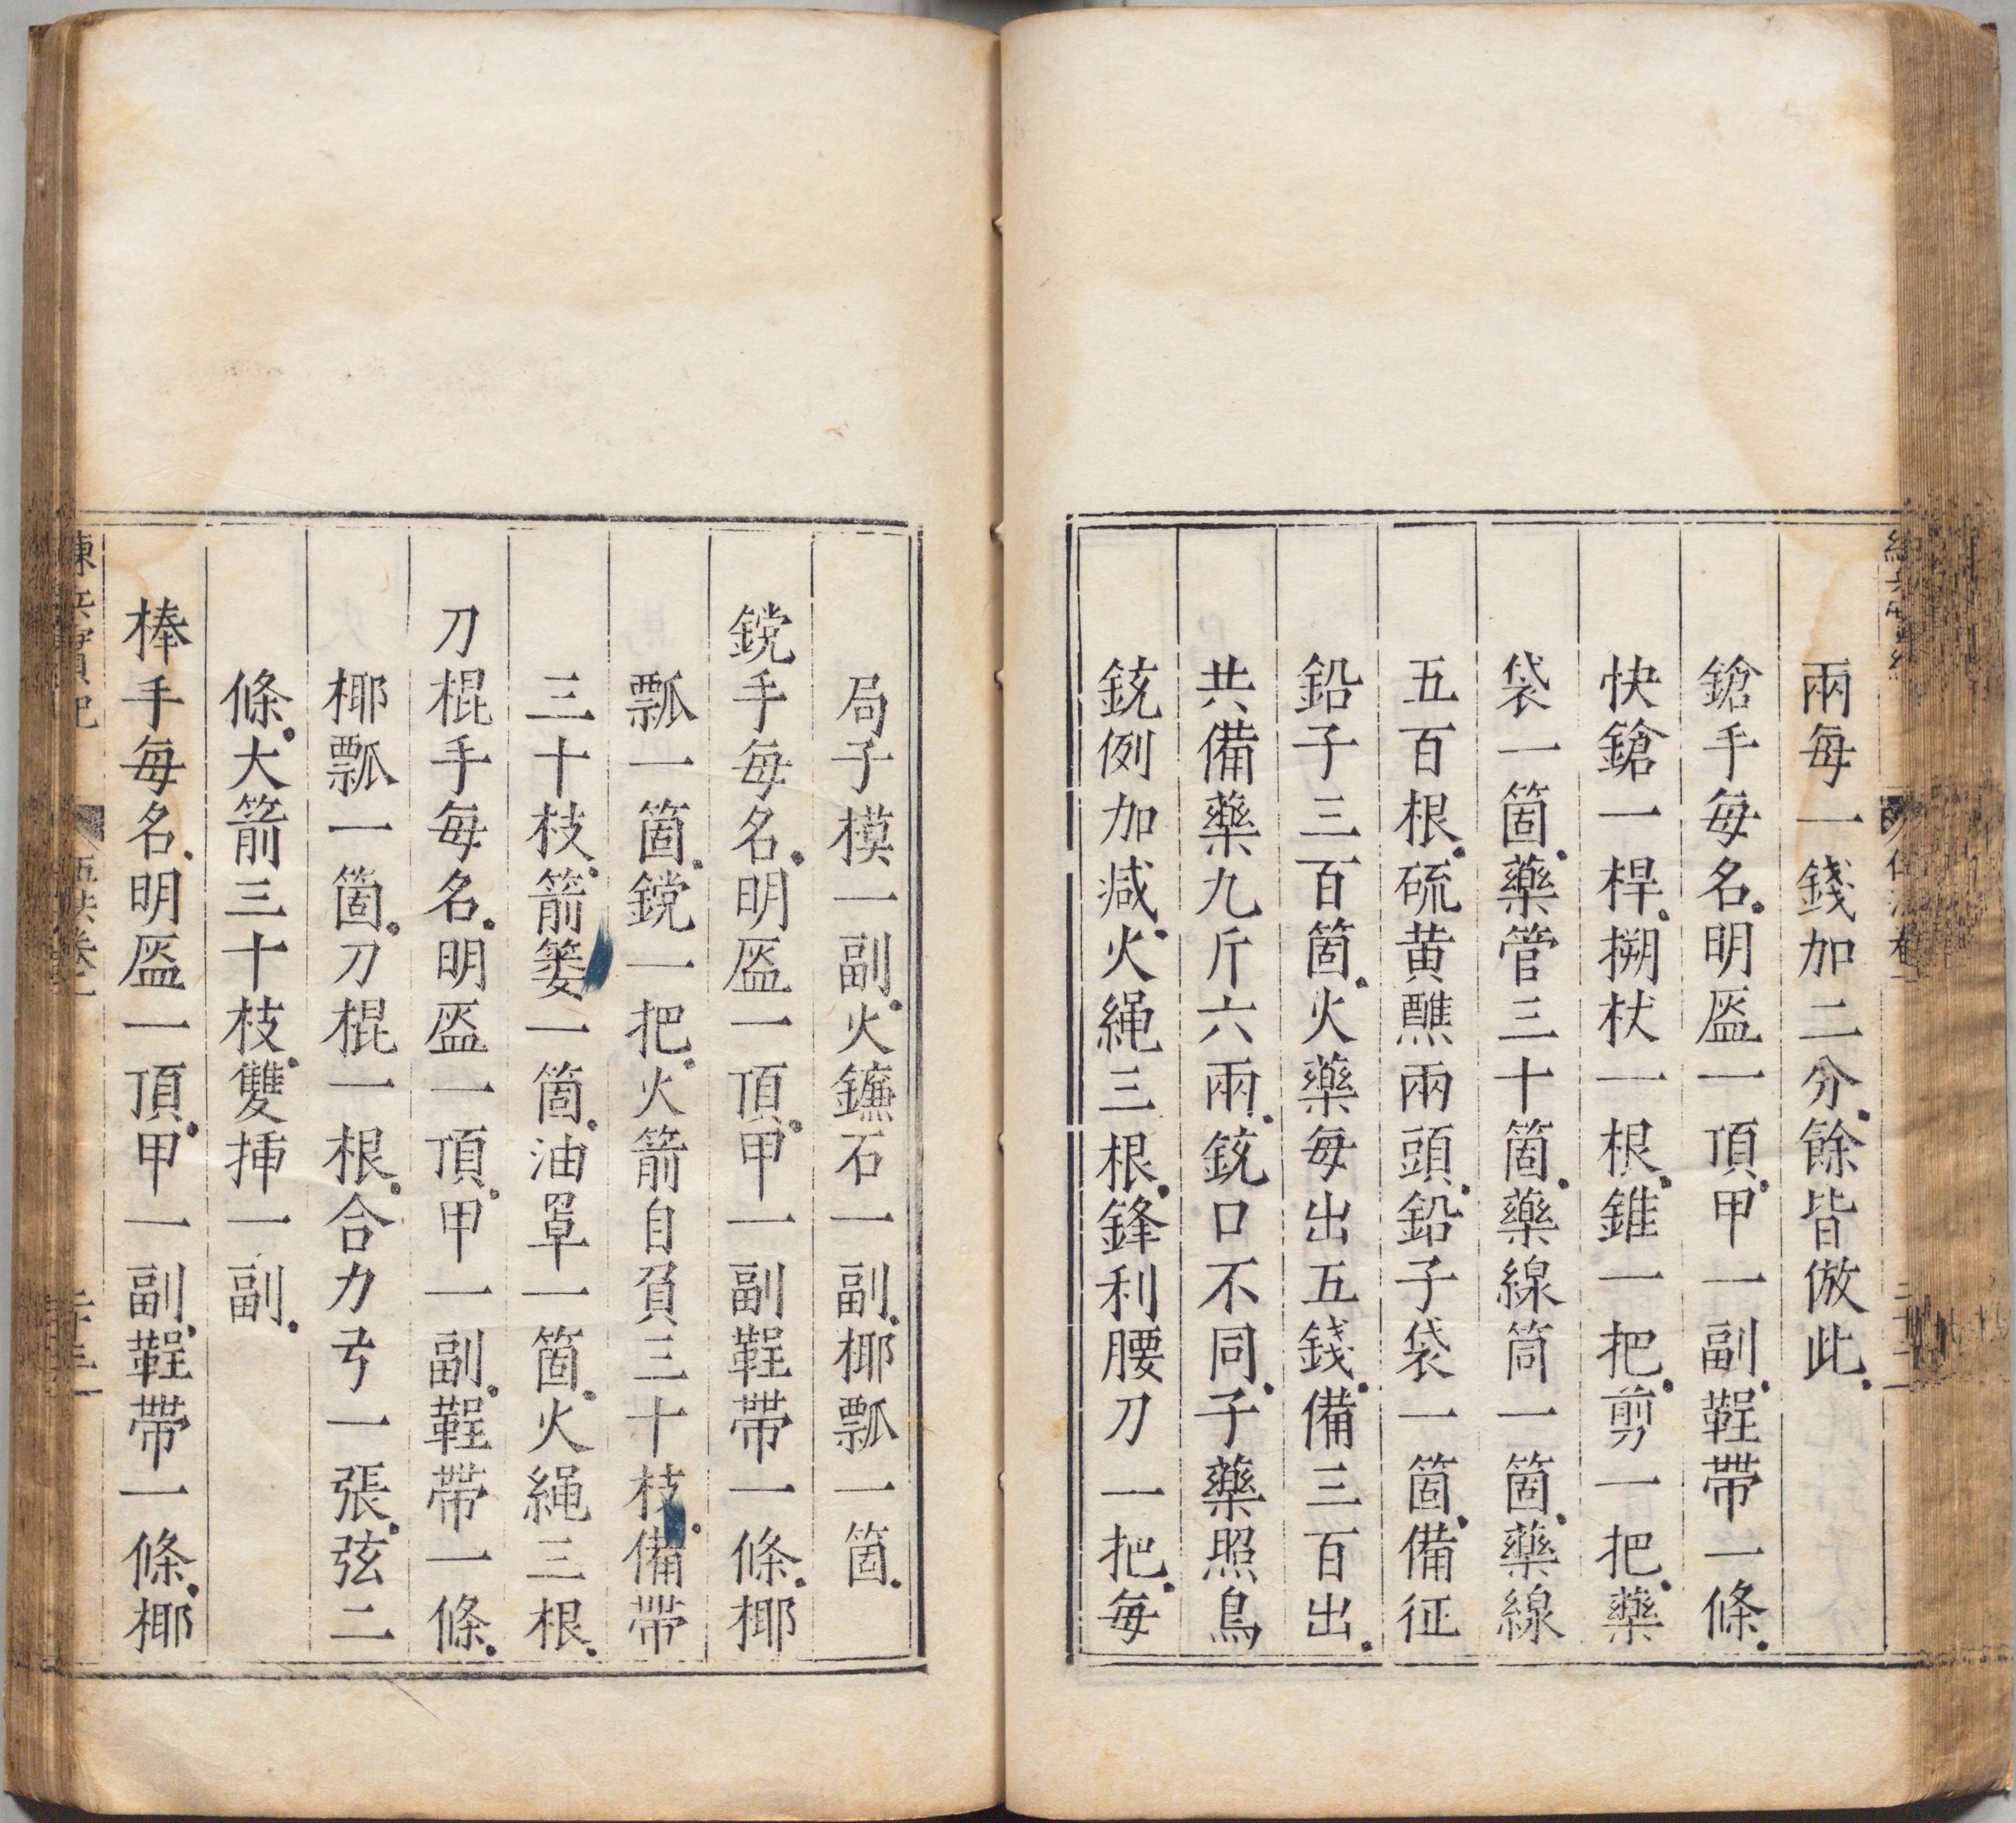 兩每一錢加二分.餘皆倣此.
鎗手每名.明盔一頂.甲一副.鞓帶一條.
快鎗一桿.搠杖一根.錐一把.剪一把.藥
袋一箇.藥管三十箇.藥線筒一箇.藥線
五百根.硫黄醮兩頭.鉛子袋一箇.備征
鉛子三百箇.火藥每出五錢.備三百出.
共備藥九斤六兩.銃口不同.子藥照鳥
銃例加減.火繩三根.鋒利腰刀一把.每
局子模一副.火鐮石一副.椰瓢一箇.
钂手每名.明盔一頂.甲一副鞓帶一條.椰
瓢一箇.钂一把.火箭自負三十枝.備帶
三十枝.箭簍一箇.油罩一箇.火繩三根.
刀棍手每名.明盔一頂.甲一副.鞓帶一條.
椰瓢一箇.刀棍一根.合力弓一張.弦二
條.大箭三十枝.雙揷一副.
棒手每名.明盔一頂.甲一副.鞓帶一條.椰
練兵實紀